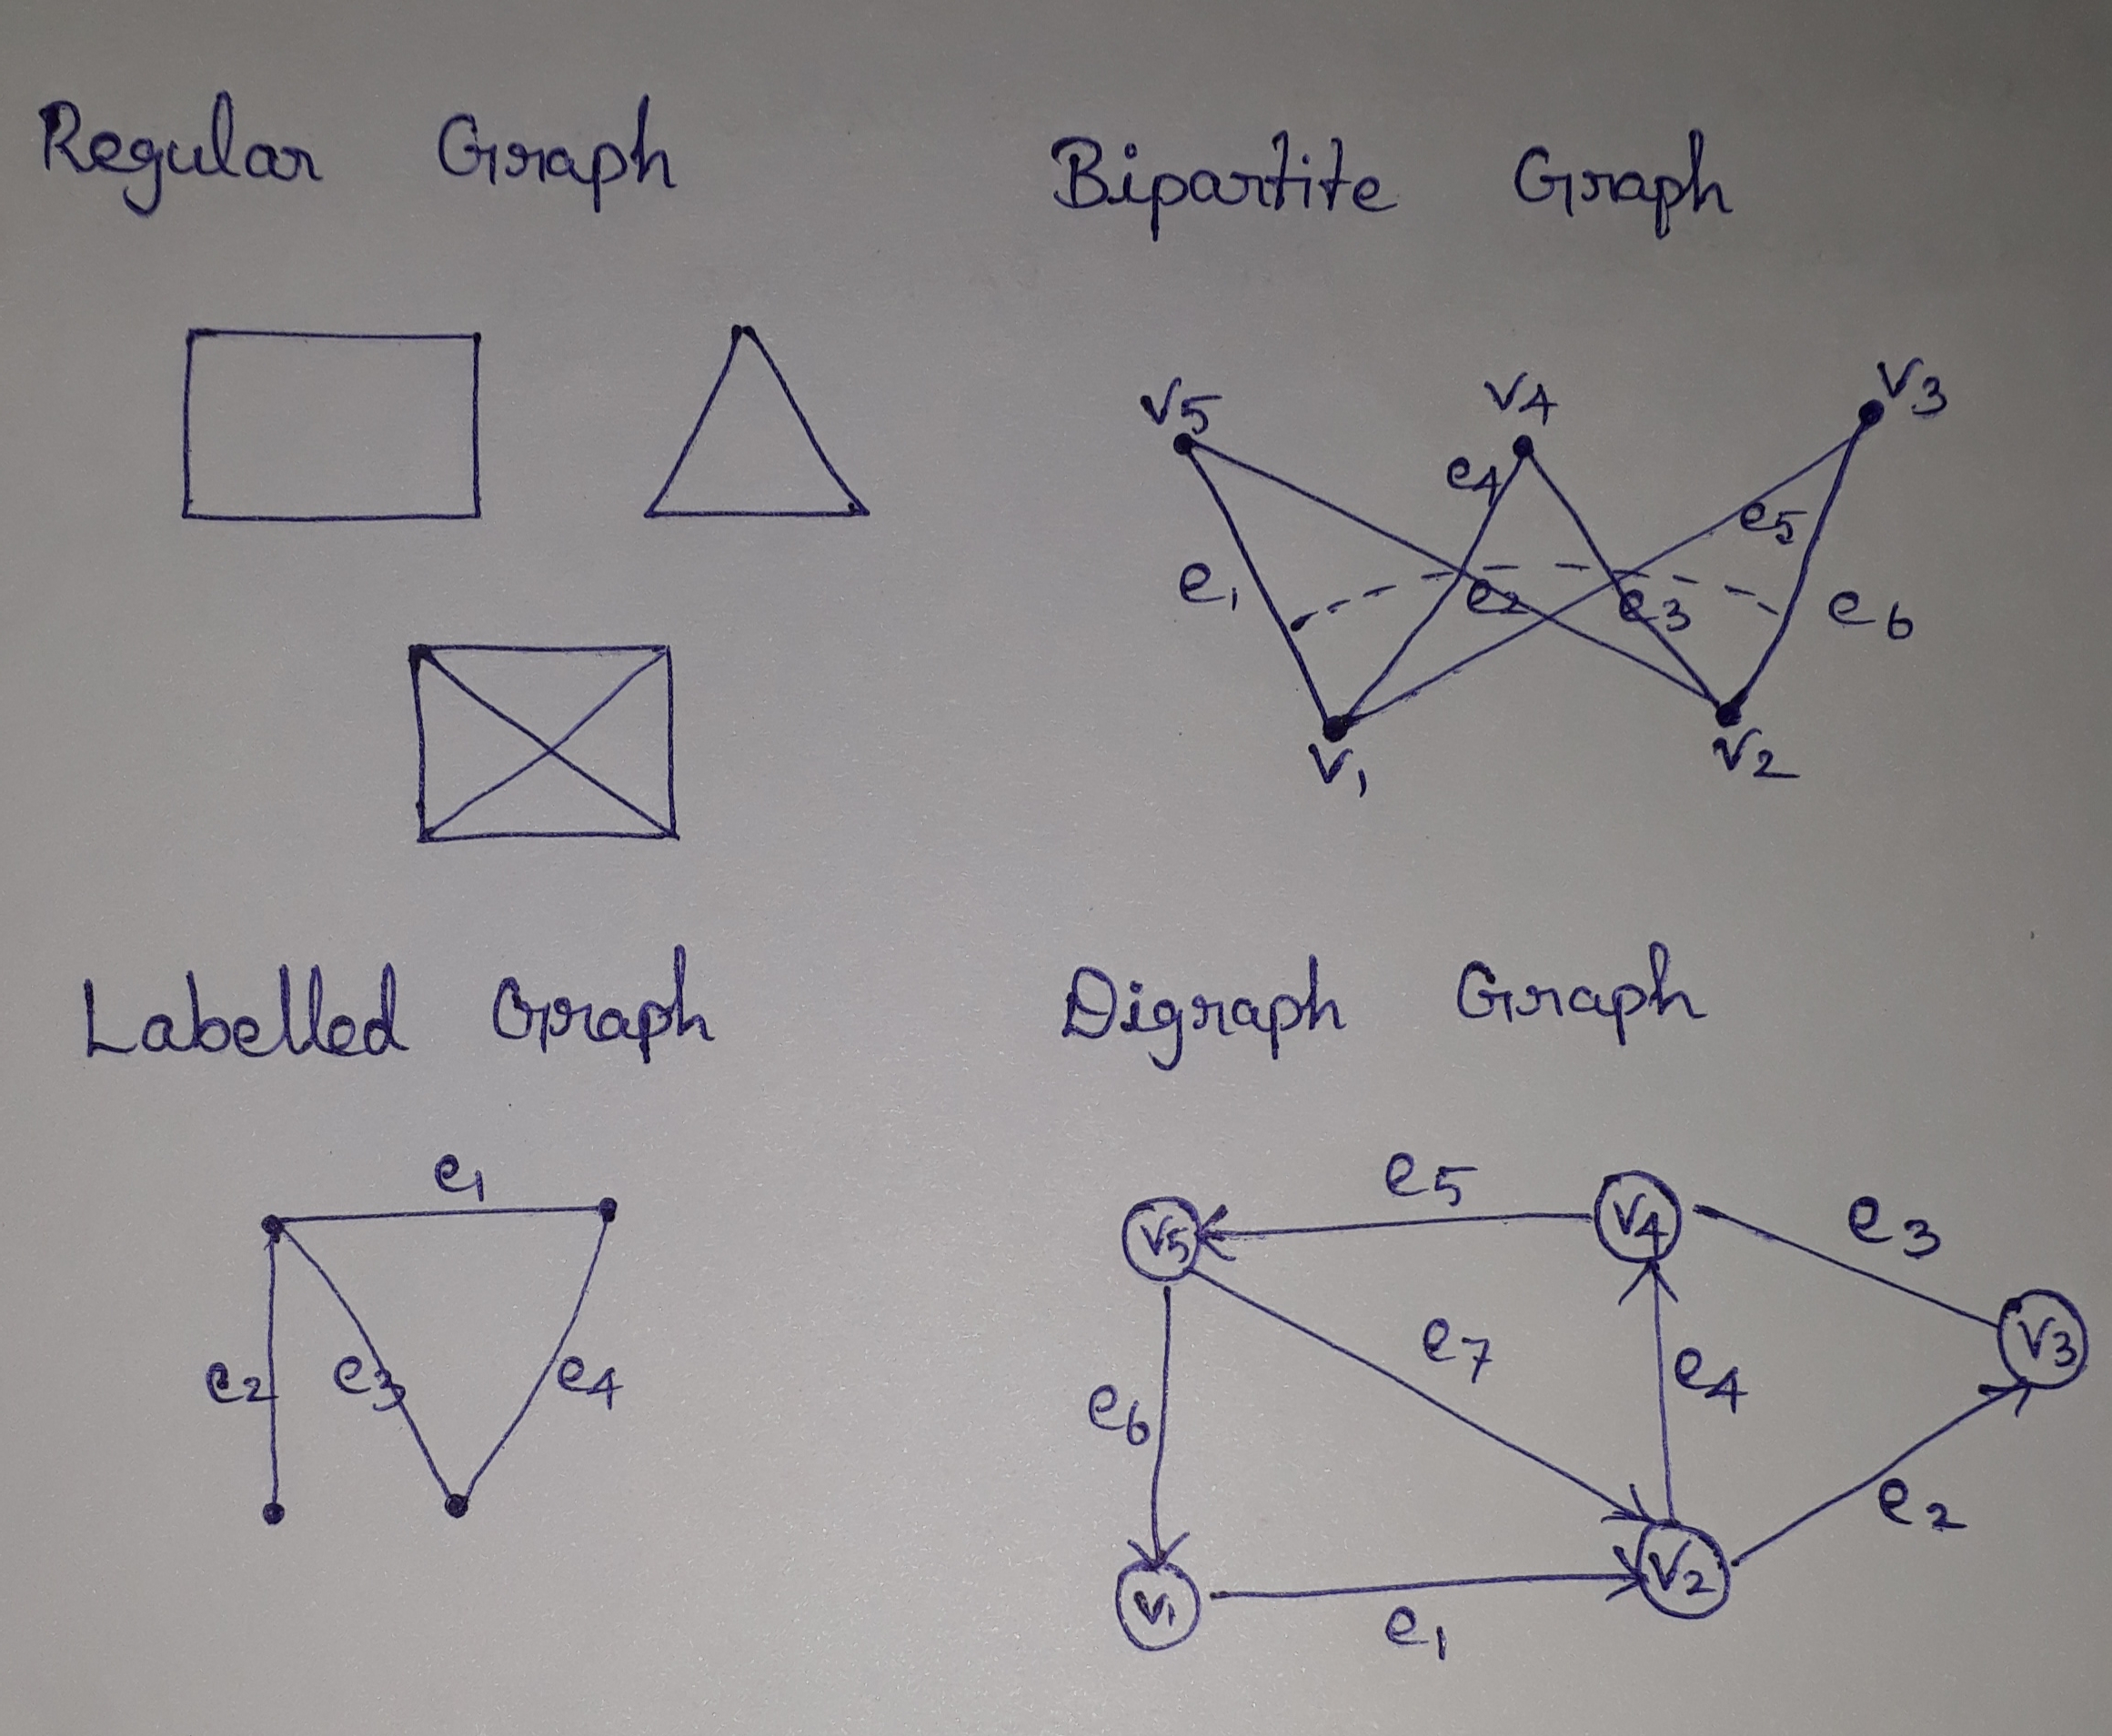 Regular Graph
Bipartite Graph
v5 v4 v3
e4
e5
e1 e2 e3 e6
v1 v2
Labelled Graph
Digraph Graph
e1
e2 e3 e4
e5
v5 v4 e3
v3
e7
e4
e6
e2
v1 v2
e1